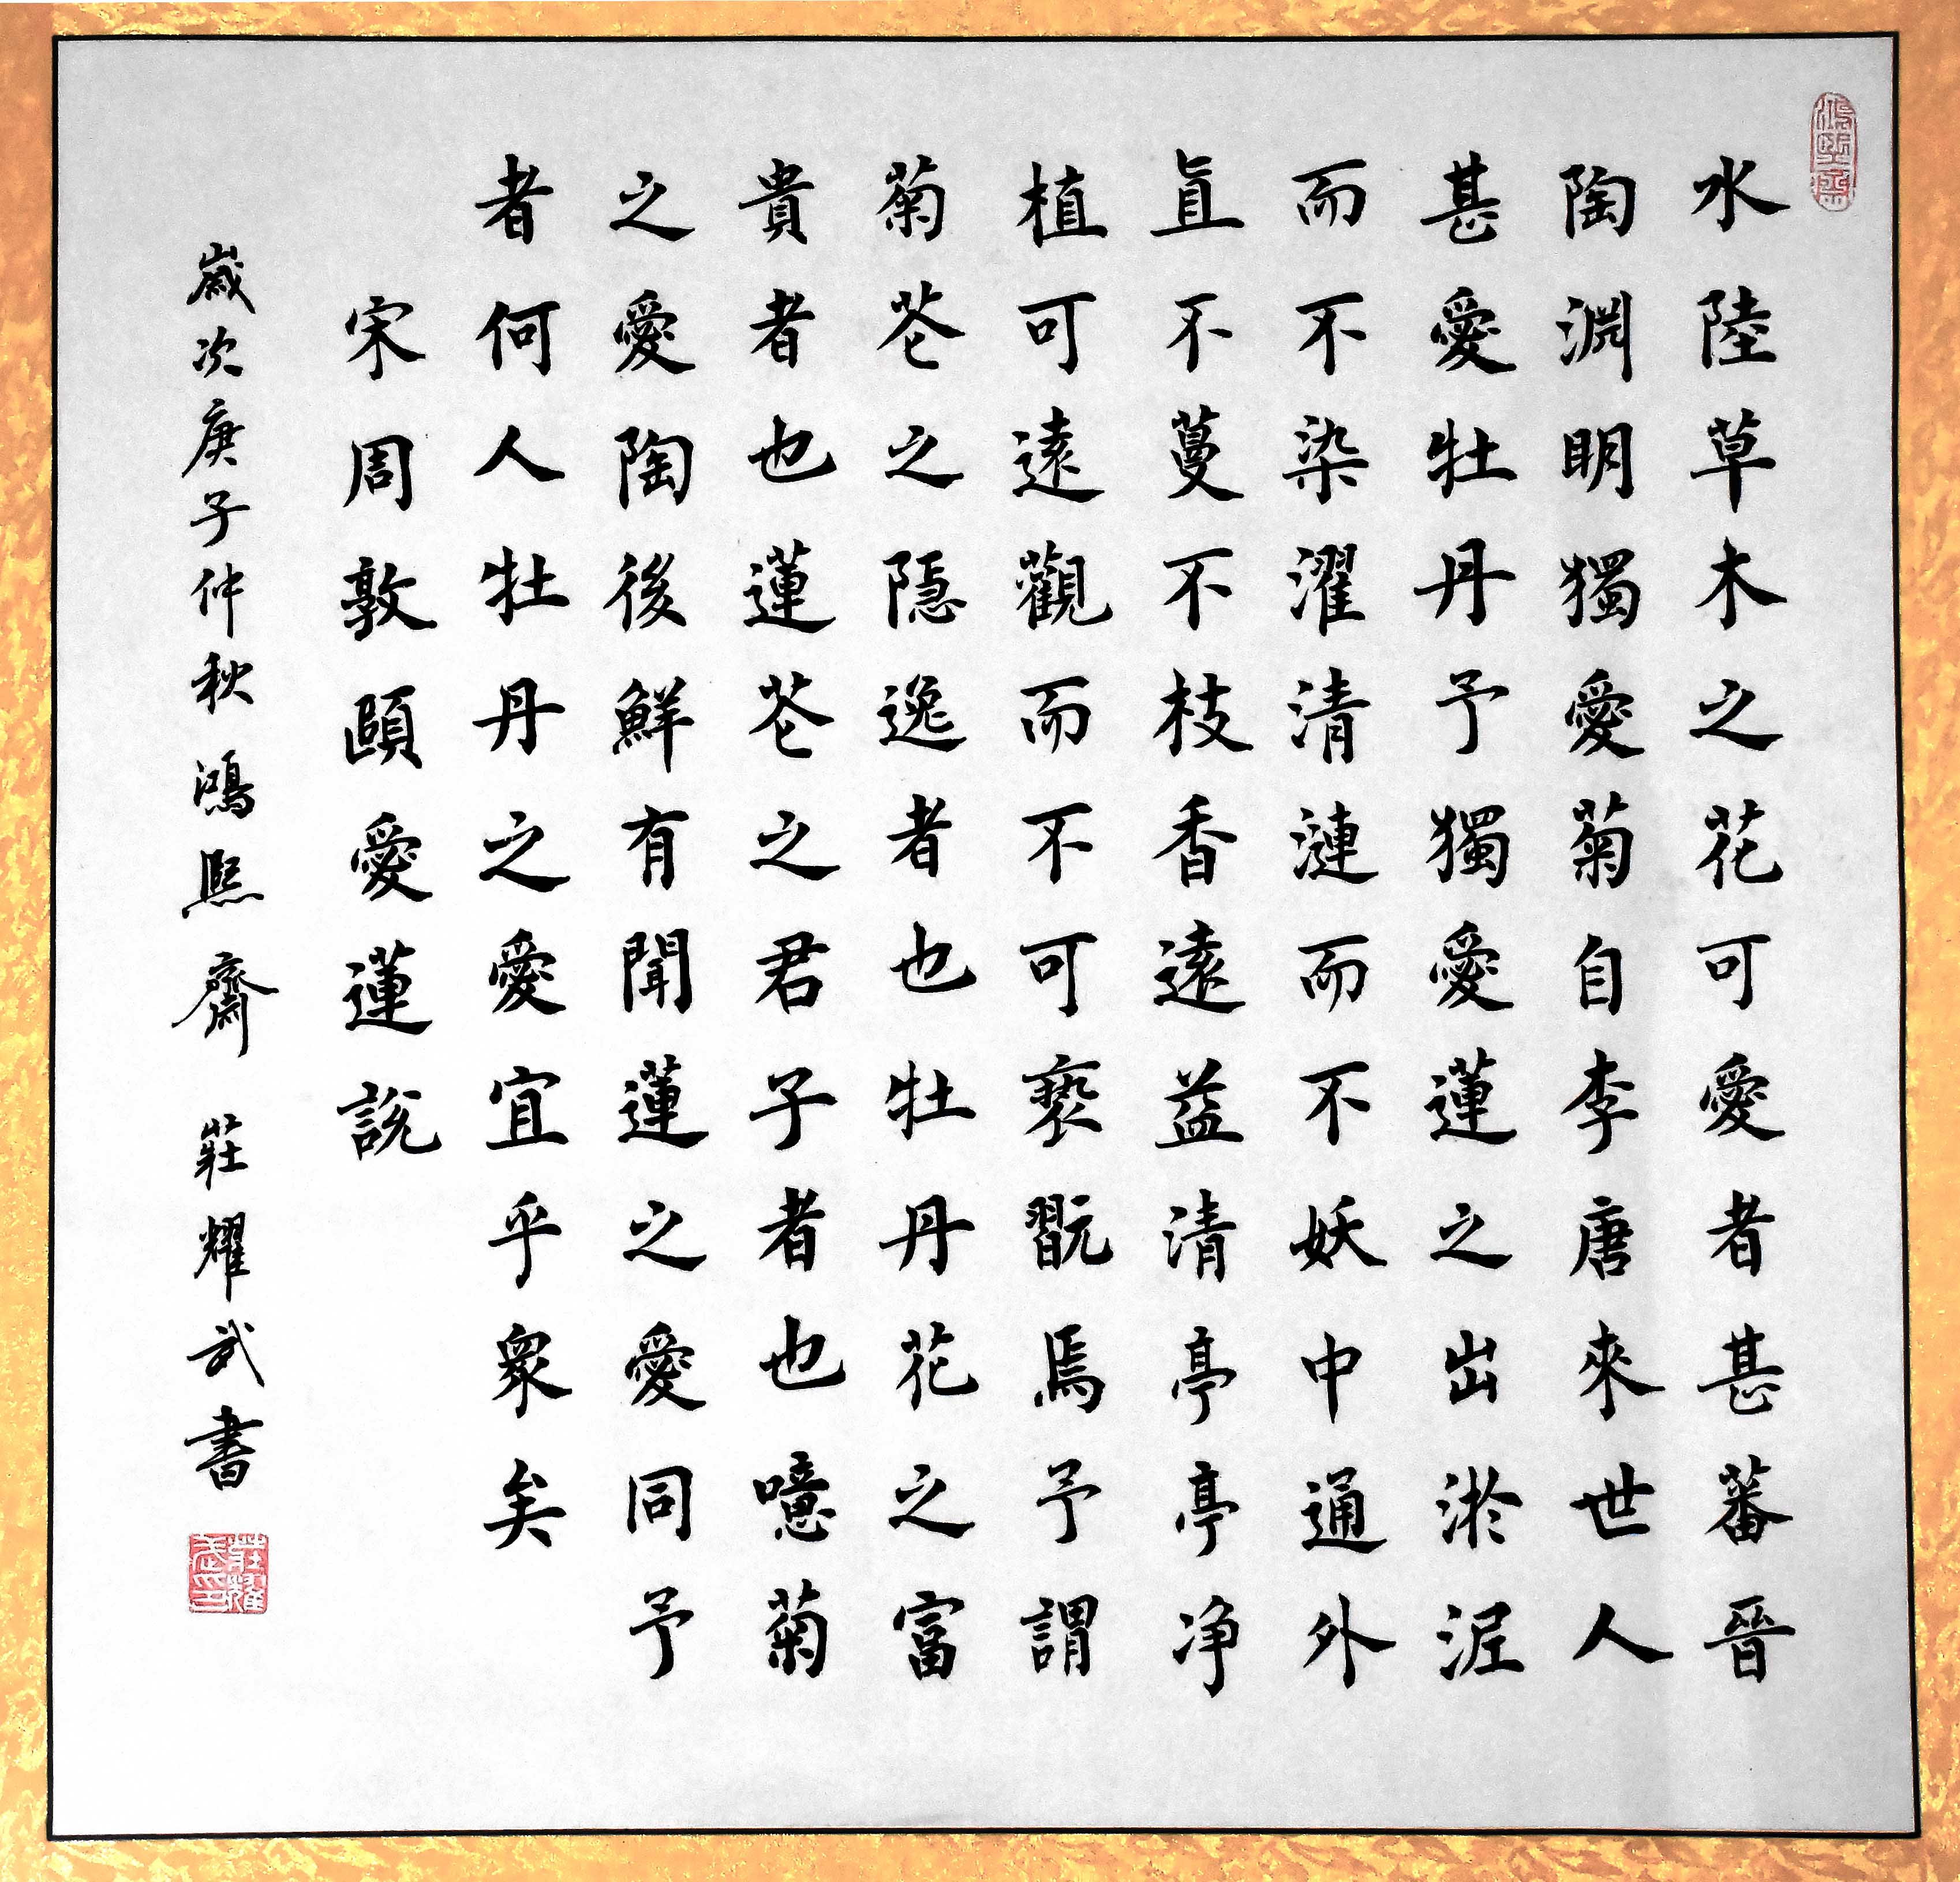 鴻熙齋
水陸草木之花可愛者甚蕃晉
陶淵明獨愛菊自李唐來世人
甚愛牡丹予獨愛蓮之出淤泥
而不染濯清漣而不妖中通外
直不蔓不枝香遠益清亭亭净
植可遠觀而不可褻翫焉予謂
菊花之隱逸者也牡丹花之富
貴者也蓮花之君子者也噫菊
之愛陶後鮮有聞蓮之愛同予
者何人牡丹之愛宜乎眾矣
宋周敦頤愛蓮說
歲次庚子仲秋鴻熙齋 莊耀武書
莊耀武印